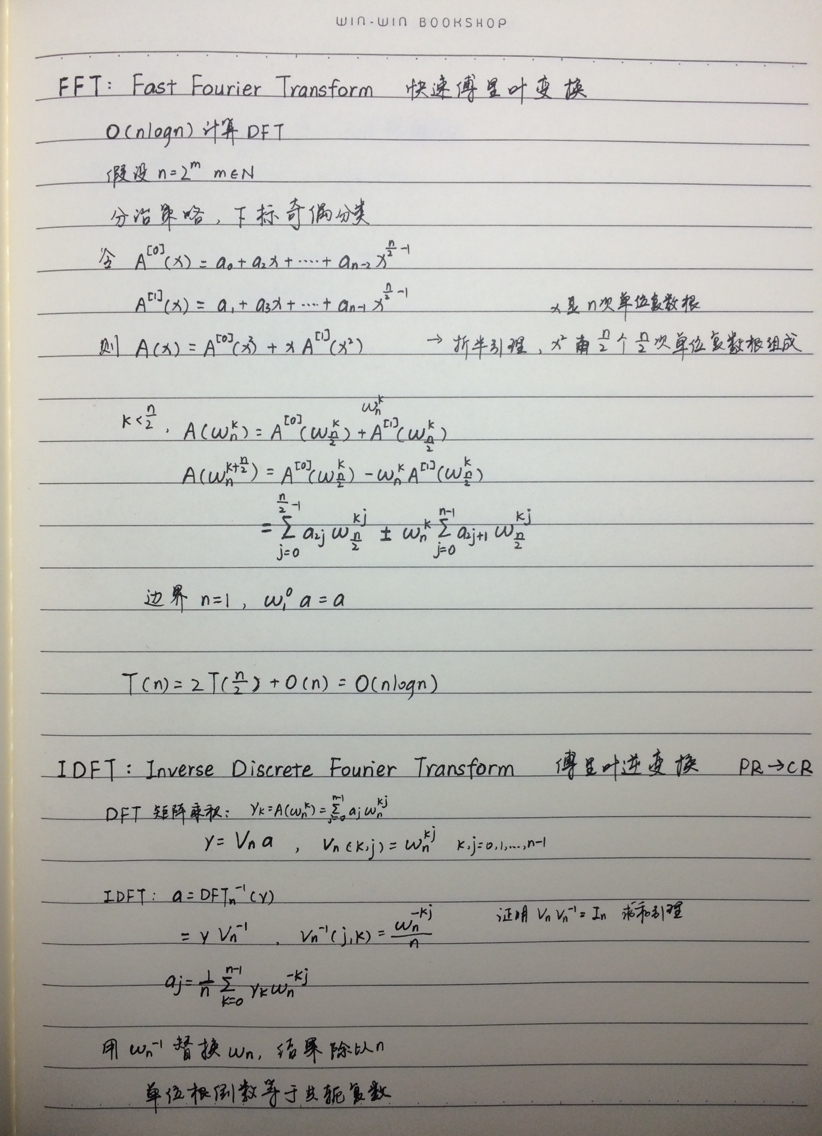 WIN-WIN BOOKSHOP
FFT: Fast Fourier Transform 快速傅里叶变换
O(nlogn) 计算 DFT
假设 n=2^m m∈N
分治策略, 下标奇偶分类
令 A^[0](x) = a₀ + a₂x + ⋯⋯ + a_{n-2} x^{n/2 -1}
A^[1](x) = a₁ + a₃x + ⋯ + a_{n-1} x^{n/2 -1}
x是n次单位复数根
则 A(x) = A^[0](x²) + x A^[1](x²) → 折半引理, x² 由 n/2 个 n/2 次单位复数根组成
k<n/2, A(ω_n^k) = A^[0](ω_{n/2}^k) + ω_n^k A^[1](ω_{n/2}^k)
A(ω_n^{k+n/2}) = A^[0](ω_{n/2}^k) - ω_n^k A^[1](ω_{n/2}^k)
= Σ_{j=0}^{n/2 -1} a_{2j} ω_{n/2}^{kj} ± ω_n^k Σ_{j=0}^{n-1} a_{2j+1} ω_{n/2}^{kj}
边界 n=1, ω₁⁰ a = a
T(n) = 2T(n/2) + O(n) = O(nlogn)
IDFT: Inverse Discrete Fourier Transform 傅里叶逆变换 PR→CR
DFT 矩阵乘积: y_k = A(ω_n^k) = Σ_{j=0}^{n-1} a_j ω_n^{kj}
y = V_n a , V_n(k,j) = ω_n^{kj} k,j=0,1,...,n-1
IDFT: a = DFT_n^{-1}(y)
证明 V_n V_n^{-1} = I_n 求和引理
= y V_n^{-1} , V_n^{-1}(j,k) = ω_n^{-kj}/n
a_j = 1/n Σ_{k=0}^{n-1} y_k ω_n^{-kj}
用 ω_n^{-1} 替换 ω_n, 结果除以n
单位根倒数等于共轭复数